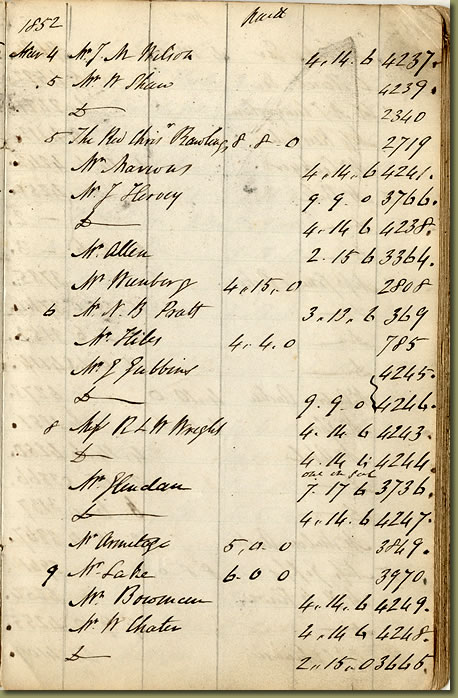 1852
Mar 4 Mr J. M Wilson 4.14.6 4237.
.5 Mr W Shaw 4239.
Do 2340
5 The Rev Chrisr Rawlins 8.8-0 2719
Mr 4.14.6 4241.
Mr J Hervey 9.9.0 3766.
Do 4.14.6 4238.
Mr Allen 2.15 6 3364.
Mr 4.,15.0 2808
6 Mr N. B Pratt 3.13.6 369
Mr Hiles 4.4.0 785
Mr J Jubbins 4245.
Do 9.9.0 4246.
8 R & W Wright 4.14.6 4243.
Do 4.14.6 4244
one in
Mr Glendan 7.17 6 3736.
Do 4.14.6 4247.
Mr Armitage 5,0.0 3849.
9 Mr Lake 6-0 0 3970.
Mr Bowman 4.14.6 4249.
Mr W Chater 4.14.6 4248.
Do 2.,15.0 3665.